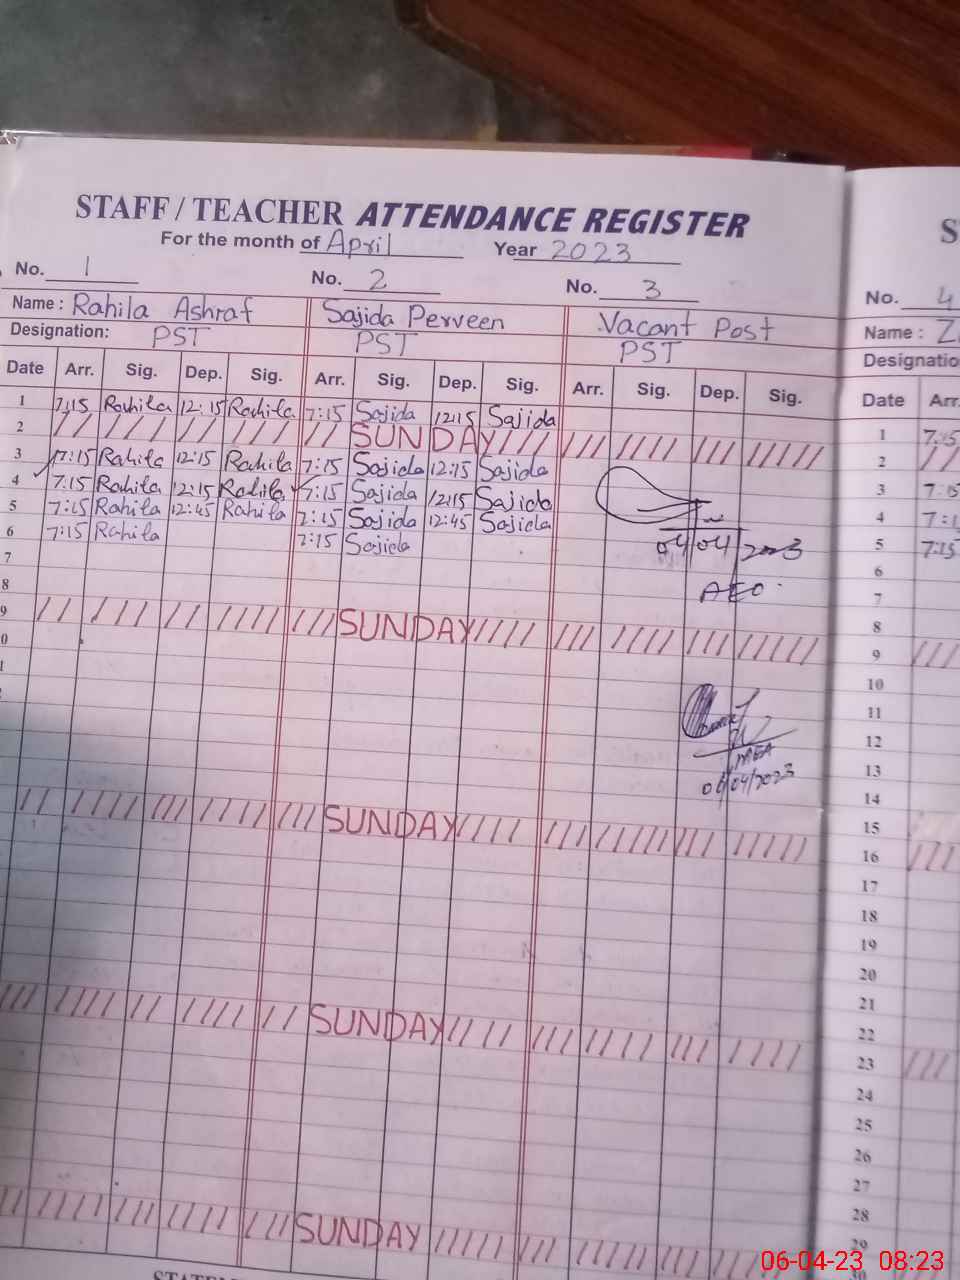 STAFF / TEACHER ATTENDANCE REGISTER
For the month of April Year 2023
No. 1 No. 2 No. 3
Name : Rahila Ashraf Sajida Perveen Vacant Post
Designation: PST PST PST
Date Arr. Sig. Dep. Sig. Arr. Sig. Dep. Sig. Arr. Sig. Dep. Sig.
1 7:15 Rahila 12:15 Rahila 7:15 Sajida 12:15 Sajida
2 SUNDAY
3 7:15 Rahila 12:15 Rahila 7:15 Sajida 12:15 Sajida
4 7:15 Rahila 12:15 Rahila 7:15 Sajida 12:15 Sajida
5 7:15 Rahila 12:45 Rahila 7:15 Sajida 12:45 Sajida
6 7:15 Rahila 7:15 Sajida
04/04/2023
7
AEO
8
9 SUNDAY
0
1
MEA
06/04/2023
SUNDAY
SUNDAY
SUNDAY
S
No. 4
Name :
Designatio
Date Arr.
1 7:15
2
3 7:15
4 7:1
5 7:15
6
7
8
9
10
11
12
13
14
15
16
17
18
19
20
21
22
23
24
25
26
27
28
29
30
06-04-23 08:23